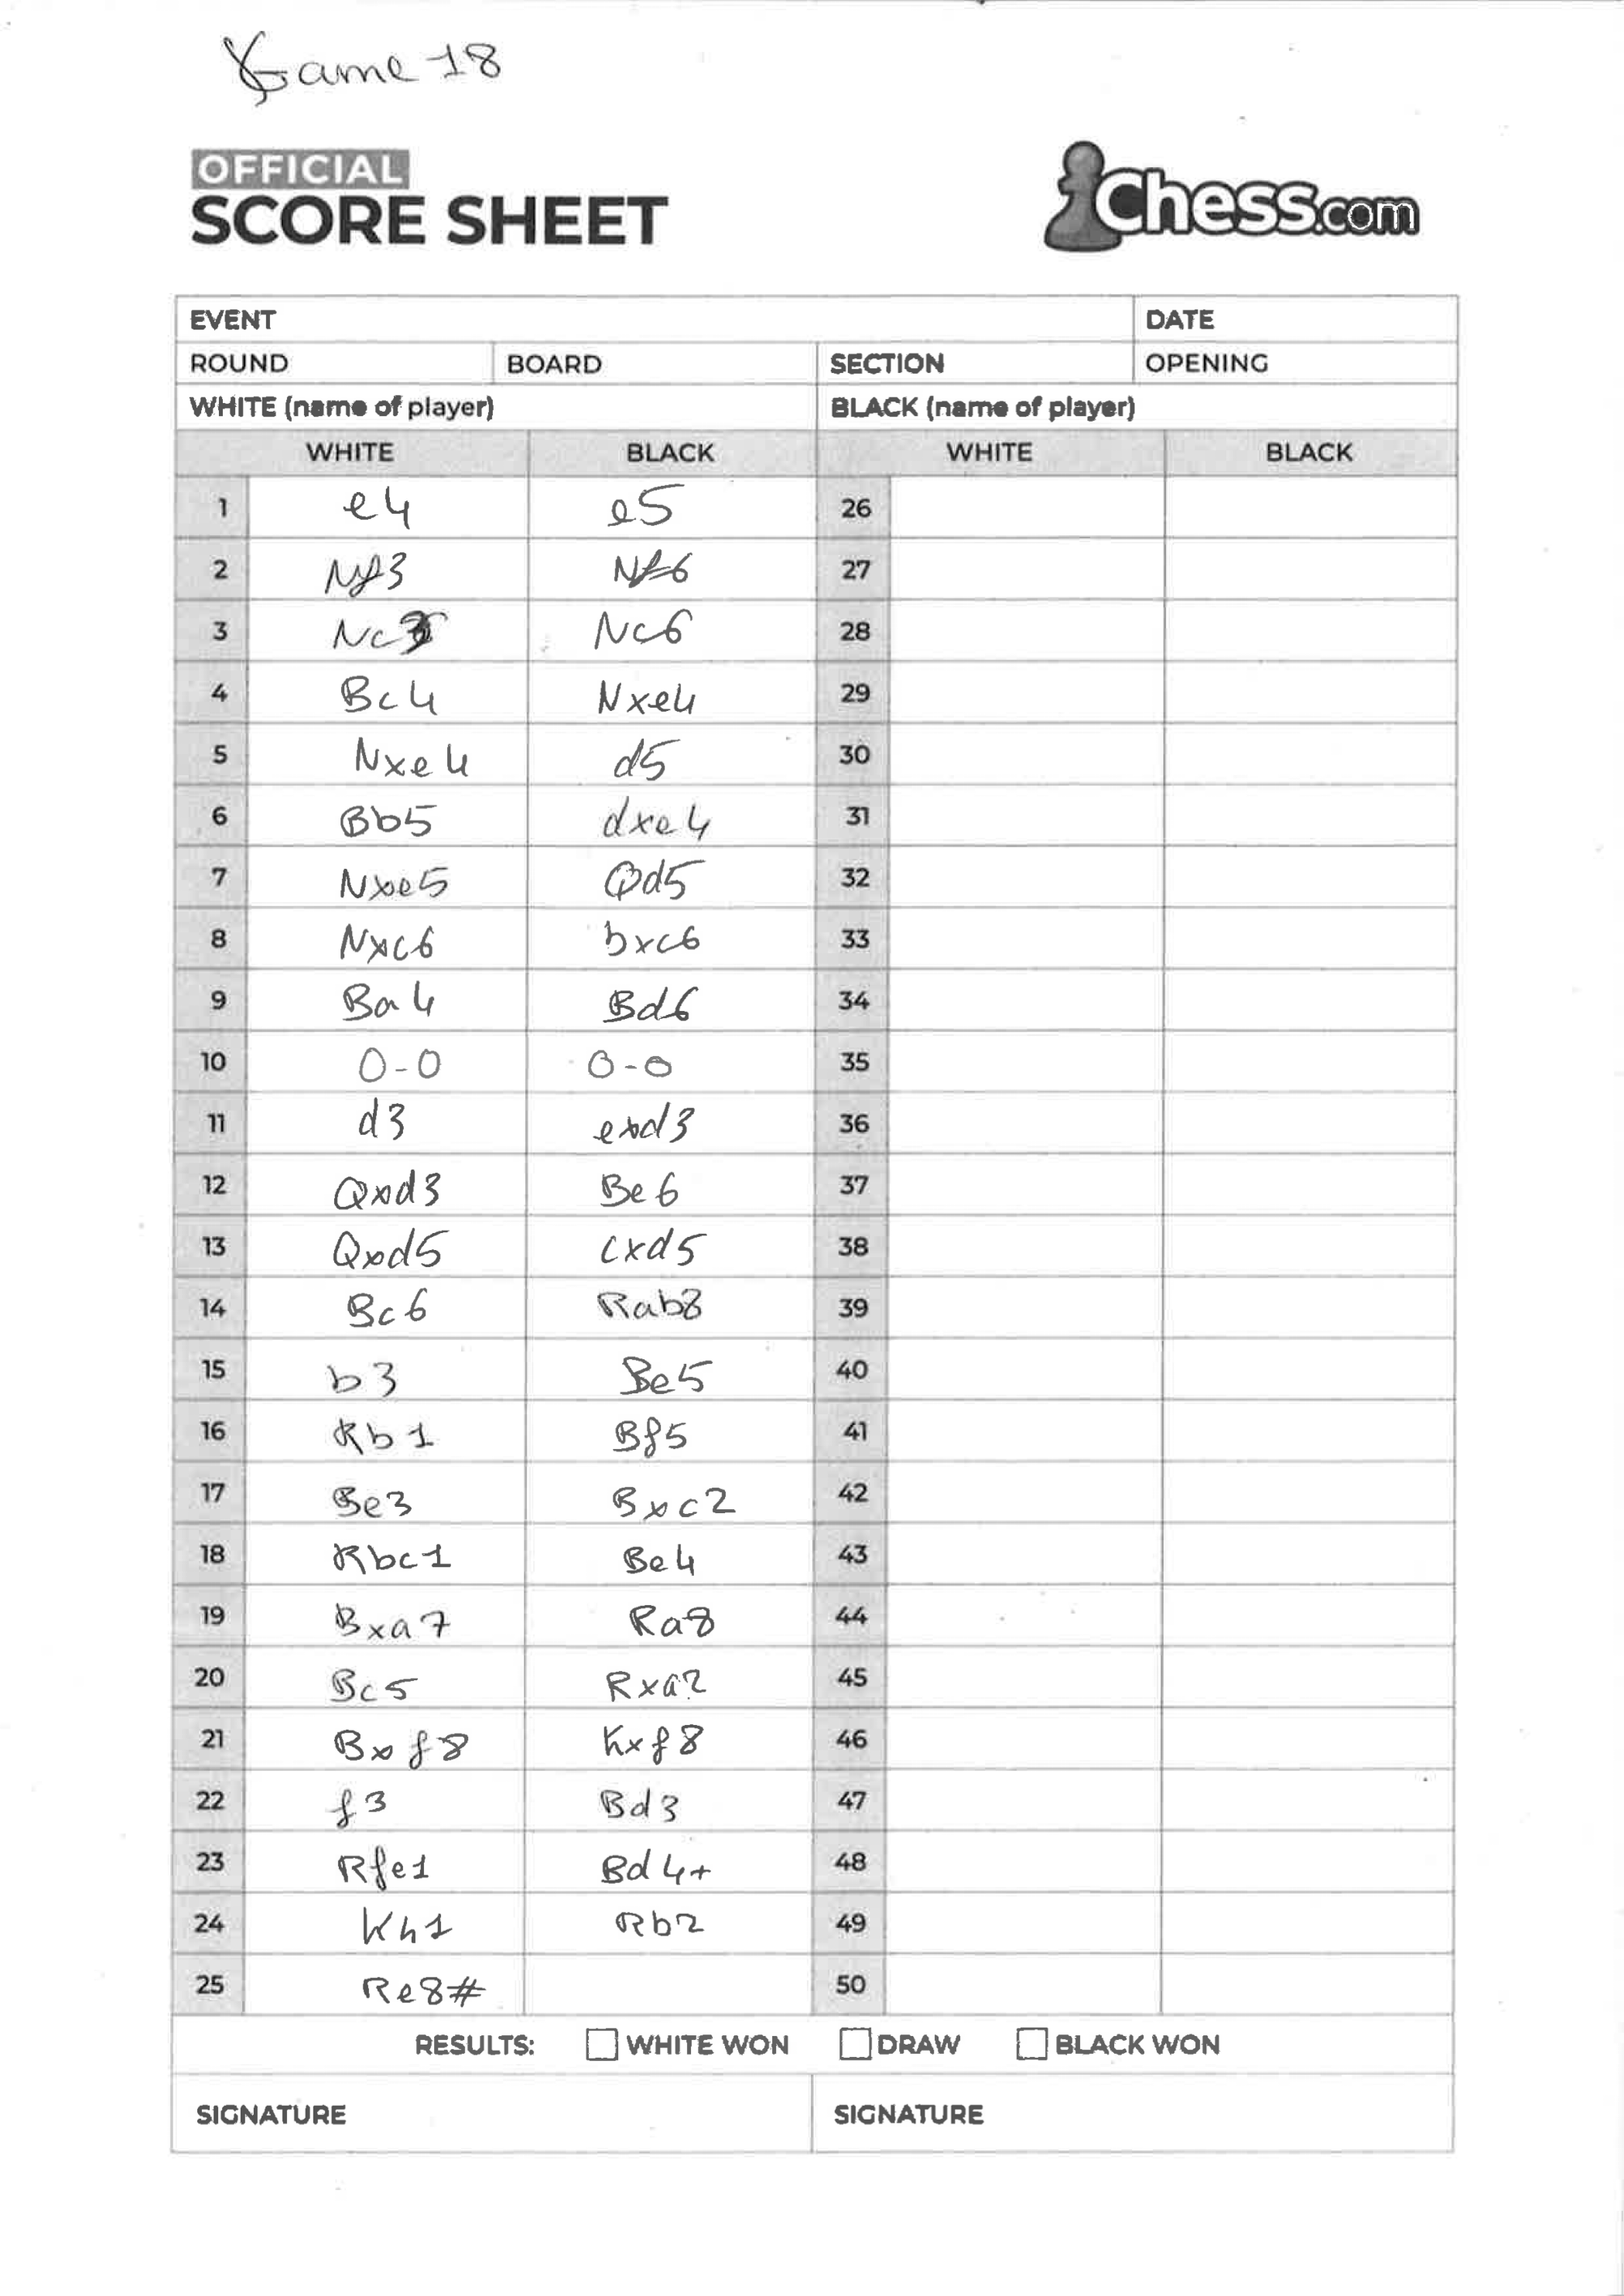 Game 18
OFFICIAL
SCORE SHEET
Chess.com
EVENT DATE
ROUND BOARD SECTION OPENING
WHITE (name of player) BLACK (name of player)
WHITE BLACK WHITE BLACK
1 e4 e5 26
2 Nf3 Nf6 27
3 Nc3 Nc6 28
4 Bc4 Nxe4 29
5 Nxe4 d5 30
6 Bb5 dxe4 31
7 Nxe5 Qd5 32
8 Nxc6 bxc6 33
9 Ba4 Bd6 34
10 0-0 0-0 35
11 d3 exd3 36
12 Qxd3 Be6 37
13 Qxd5 cxd5 38
14 Bc6 Rab8 39
15 b3 Be5 40
16 Rb1 Bf5 41
17 Be3 Bxc2 42
18 Rbc1 Be4 43
19 Bxa7 Ra8 44
20 Bc5 Rxa2 45
21 Bxf8 Kxf8 46
22 f3 Bd3 47
23 Rfe1 Bd4+ 48
24 Kh1 Rb2 49
25 Re8# 50
RESULTS: WHITE WON DRAW BLACK WON
SIGNATURE SIGNATURE